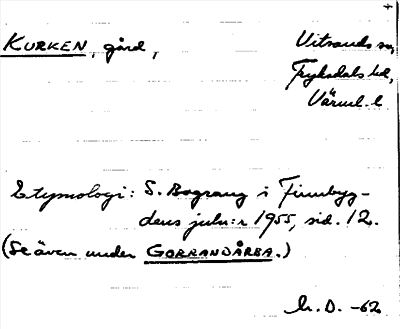 KURKEN, gård, Vitsands sn,
Fryksdals hd,
Värml. l
Etymologi: S. Bograng i Finnbyg-
dens juln:r 1955, sid. 12.
(Se även under GOBRANDÅRBA.)
h. D. -62